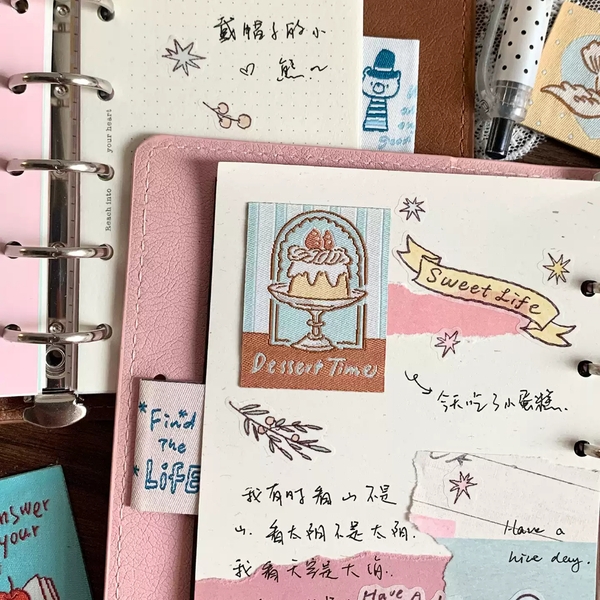 戴帽子的小
熊~
Reach into your heart
Sweet Life
Dessert Time
今天吃了小蛋糕..
Find
The
LiFE
nswer
your
我有时看山不是
山.看太阳不是太阳.
我看天空是大海..
Have a
nice day.
Have A